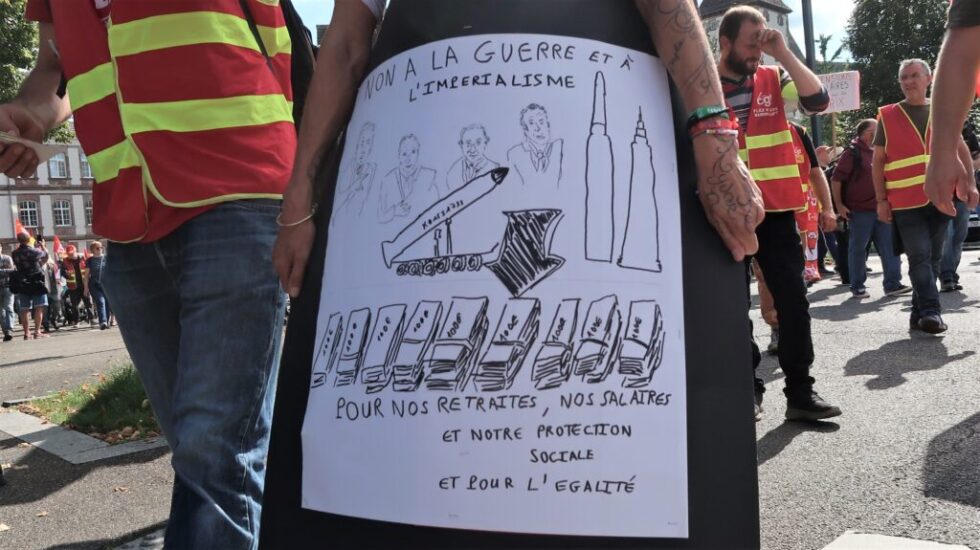 NON A LA GUERRE ET À
L'IMPERIALISME
100€ 100€ 100€ 100€
POUR NOS RETRAITES, NOS SALAIRES
ET NOTRE PROTECTION
SOCIALE
ET POUR L'EGALITÉ